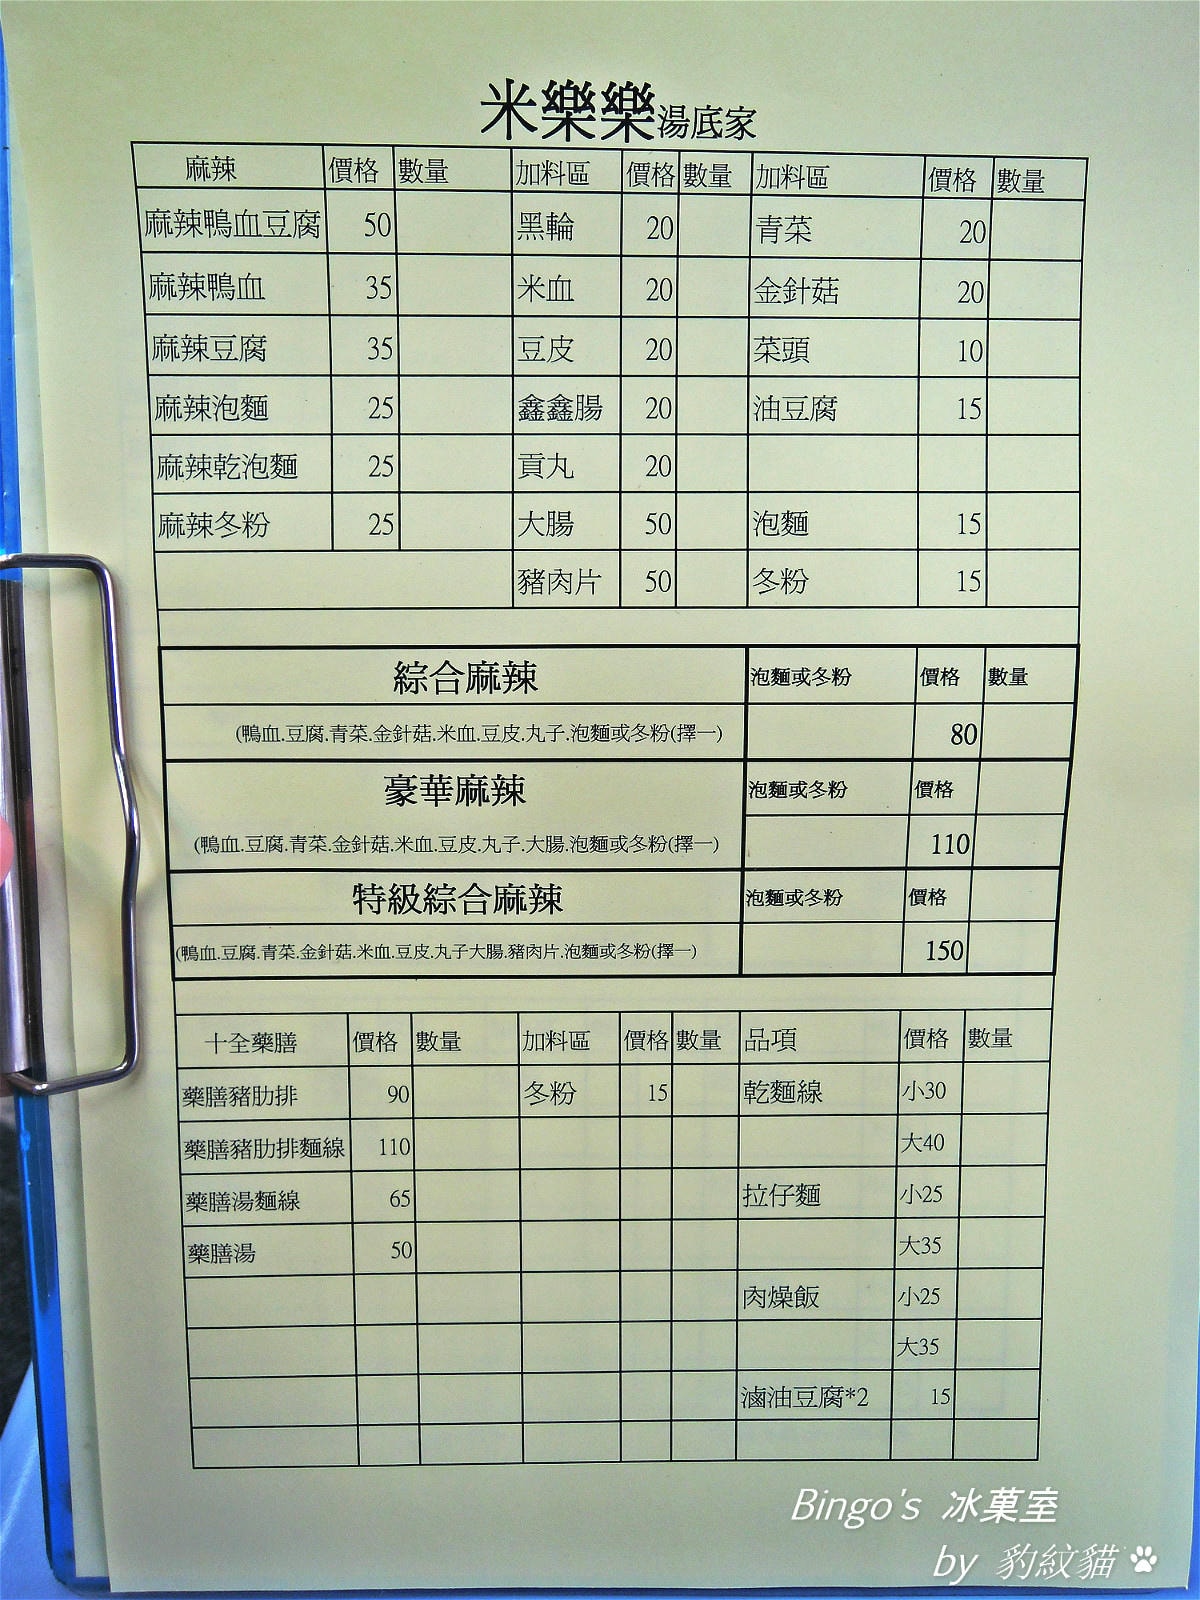 米樂樂湯底家
麻辣 價格 數量 加料區 價格 數量 加料區 價格 數量
麻辣鴨血豆腐 50 黑輪 20 青菜 20
麻辣鴨血 35 米血 20 金針菇 20
麻辣豆腐 35 豆皮 20 菜頭 10
麻辣泡麵 25 鑫鑫腸 20 油豆腐 15
麻辣乾泡麵 25 貢丸 20
麻辣冬粉 25 大腸 50 泡麵 15
豬肉片 50 冬粉 15
綜合麻辣 泡麵或冬粉 價格 數量
(鴨血.豆腐.青菜.金針菇.米血.豆皮.丸子.泡麵或冬粉(擇一) 80
豪華麻辣 泡麵或冬粉 價格
(鴨血.豆腐.青菜.金針菇.米血.豆皮.丸子.大腸.泡麵或冬粉(擇一) 110
特級綜合麻辣 泡麵或冬粉 價格
(鴨血.豆腐.青菜.金針菇.米血.豆皮.丸子大腸.豬肉片.泡麵或冬粉(擇一) 150
十全藥膳 價格 數量 加料區 價格 數量 品項 價格 數量
藥膳豬肋排 90 冬粉 15 乾麵線 小30
藥膳豬肋排麵線 110 大40
藥膳湯麵線 65 拉仔麵 小25
藥膳湯 50 大35
肉燥飯 小25
大35
滷油豆腐*2 15
Bingo's 冰菓室
by 豹紋貓